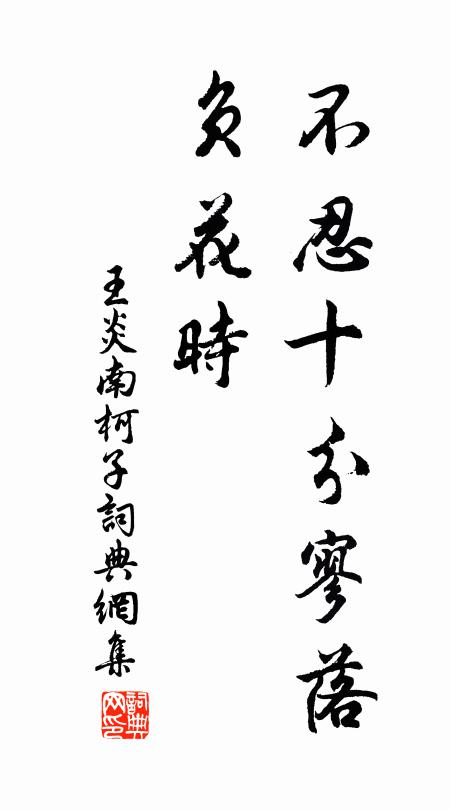 不忍十分寥落
负花時
王炎南柯子詞典網集
詞典网印